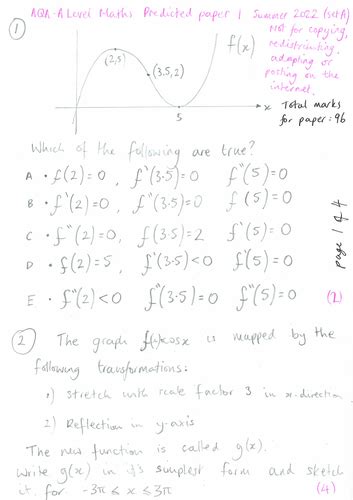 AQA A Level Maths Predicted paper 1 Summer 2022 (set A)
NOT for copying,
redistributing,
adapting or
posting on the
internet.
1
f(x)
(2,5)
(3.5, 2)
5
x
Total marks
for paper: 96
Which of the following are true?
A • f(2)=0, f'(3.5)=0 f''(5)=0
B • f'(2)=0, f''(3.5)=0 f(5)=0
C • f''(2)=0, f(3.5)=2 f'(5)=0
D • f(2)=5, f'(3.5)<0 f'(5)=0
E • f''(2)<0 f''(3.5)=0 f''(5)=0 (2)
page 1 of 4
2 The graph f(x)=cosx is mapped by the
following transformations:
1) Stretch with scale factor 3 in x-direction
2) Reflection in y-axis
The new function is called g(x).
Write g(x) in it's simplest form and sketch
it for -3π ≤ x ≤ 3π (4)